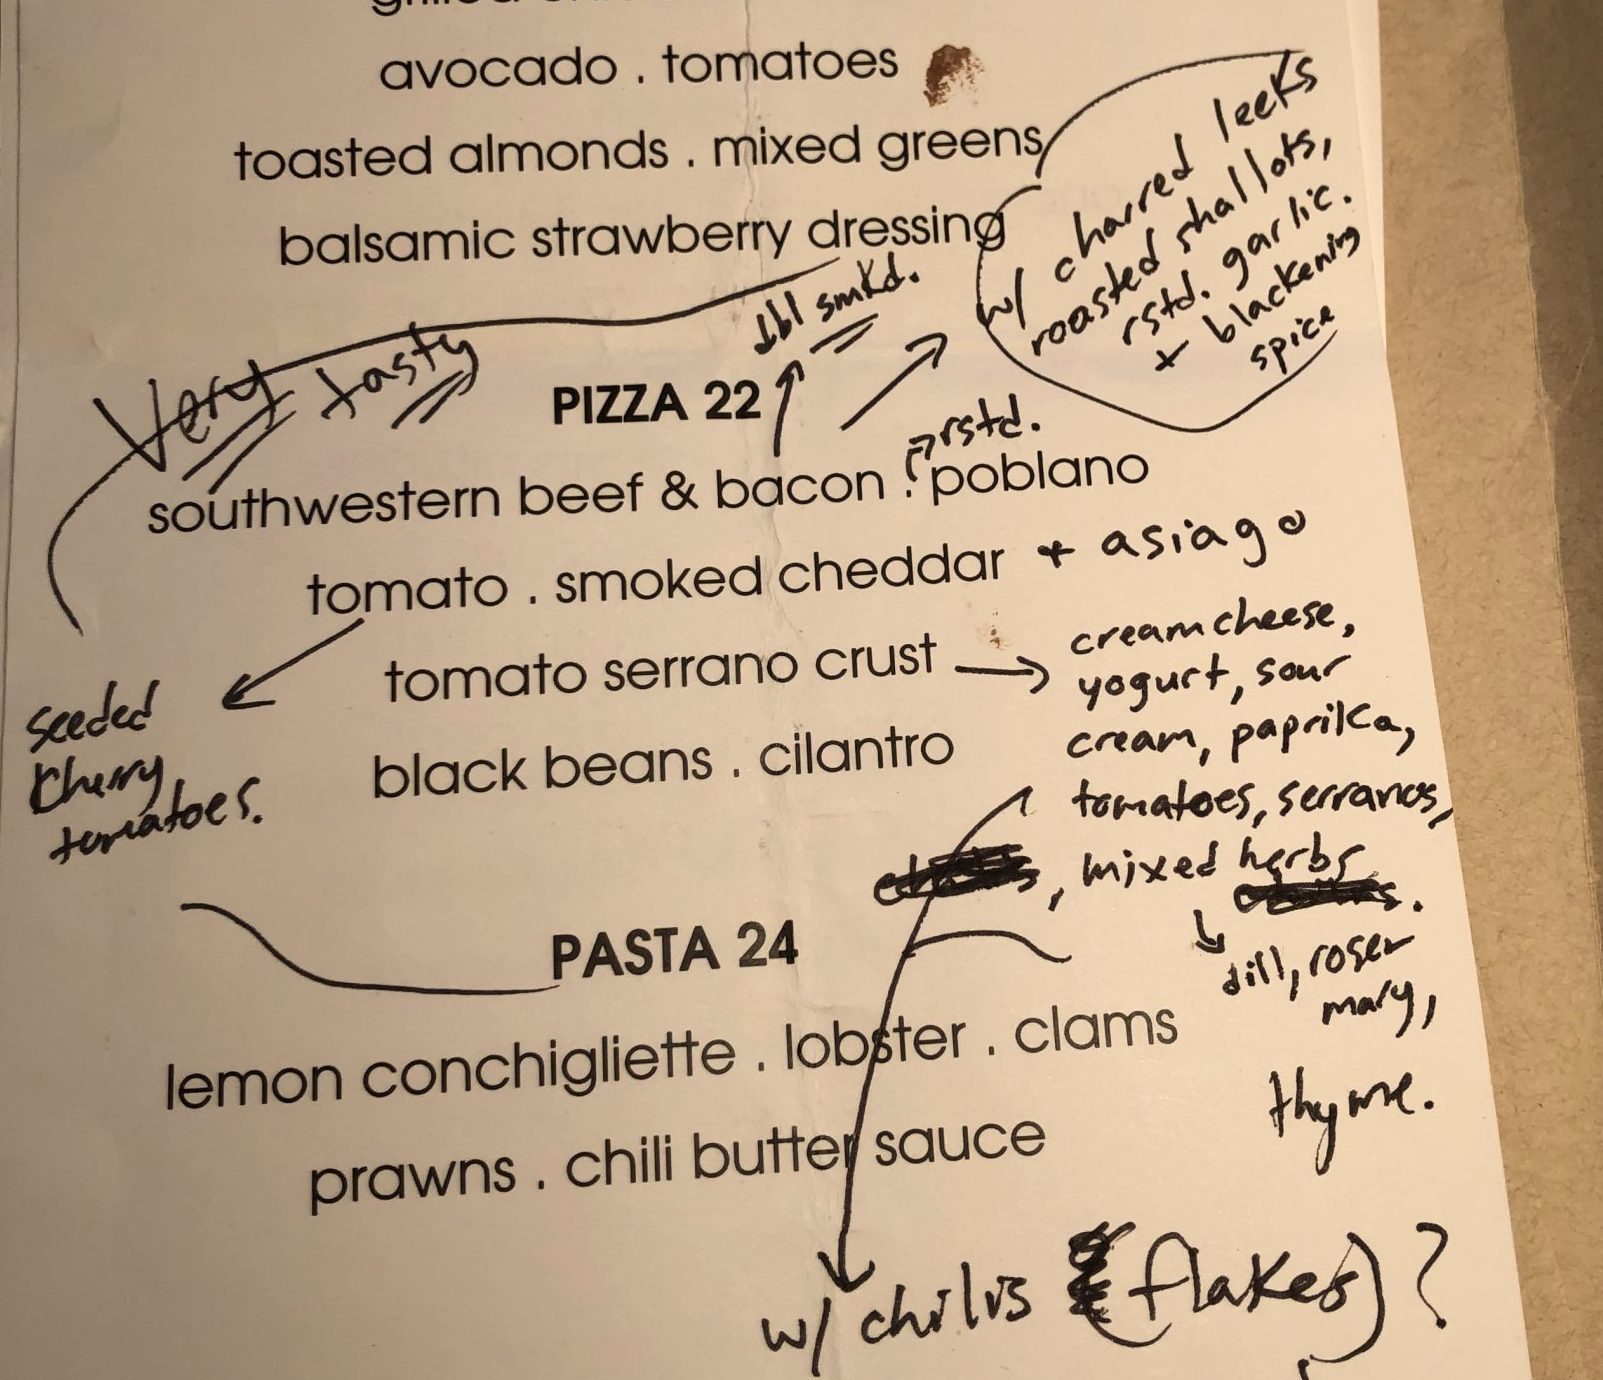 avocado . tomatoes
toasted almonds . mixed greens
balsamic strawberry dressing
w/ charred leeks
roasted shallots,
rstd. garlic.
+ blackening
spice
Very tasty
dbl smkd.
PIZZA 22
rstd.
southwestern beef & bacon . poblano
tomato . smoked cheddar + asiago
tomato serrano crust
black beans . cilantro
seeded
cherry
tomatoes.
creamcheese,
yogurt, sour
cream, paprika,
tomatoes, serranos,
, mixed herbs
.
dill, roser
mary,
thyme.
PASTA 24
lemon conchigliette . lobster . clams
prawns . chili butter sauce
w/ chilis (flakes)?